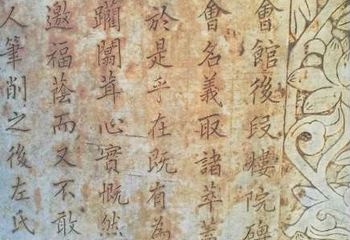 會館後段樓院碑
會名義取諸萃蓋
於是乎在既有為
闒茸心實慨然
邀福蔭而又不敢
人筆削之後左氏